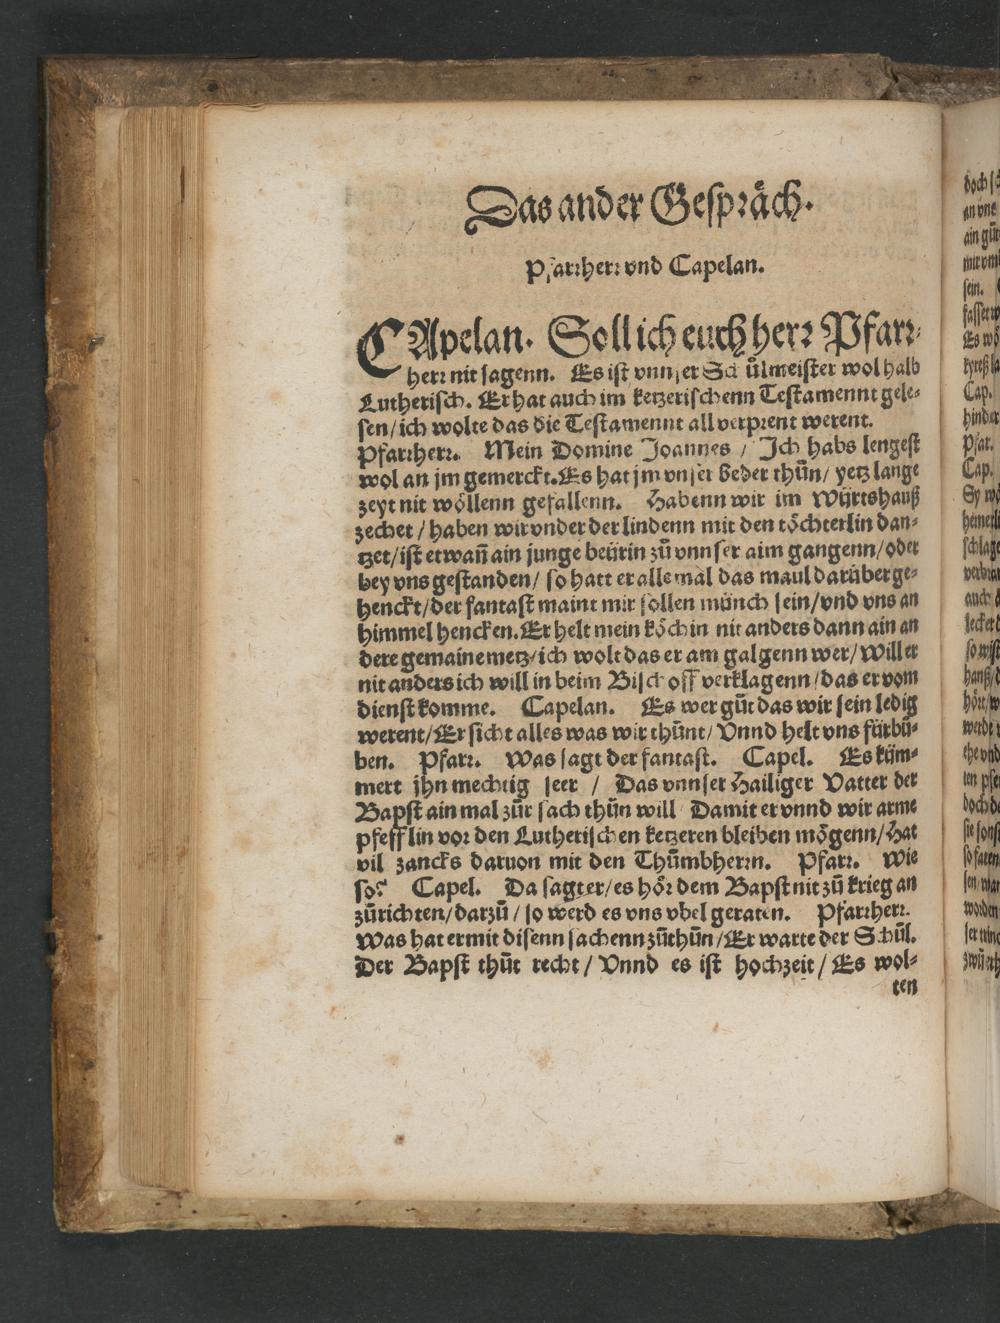 Das ander Gespräch.
Pfarrherr vnd Capelan.
CApelan. Soll ich euch herr Pfarr⸗
herr nit sagenn. Es ist vnnser Schůlmeister wol halb
Lutherisch. Er hat auch im ketzerischenn Testamennt gele⸗
sen/ich wolte das die Testamennt all verprent werent.
Pfarrherr. Mein Domine Joannes / Ich habs lengest
wol an jm gemerckt. Es hat jm vnser beder thůn/ yetz lange
zeyt nit wöllenn gefallenn. Habenn wir im Wijrtshauß
zechet / haben wir vnder der lindenn mit den töchterlin dan⸗
tzet/ist etwañ ain junge beürin zů vnnser aim gangenn/oder
bey vns gestanden/ so hatt er allemal das maul darüber ge⸗
henckt/der fantast maint mir sollen münch sein/vnd vns an
himmel hencken. Er helt mein köchin nit anders dann ain an
dere gemaine metz/ich wolt das er am galgenn wer/Will er
nit anders ich will in beim Bischoff verklagenn/das er vom
dienst komme. Capelan. Es wer gůt das wir sein ledig
werent/Er sicht alles was wir thůnt/Vnnd helt vns für bů⸗
ben. Pfarr. Was sagt der fantast. Capel. Es küm⸗
mert jhn mechtig seer / Das vnnser Hailiger Vatter der
Bapst ain mal zůr sach thůn will Damit er vnnd wir arme
pfefflin vor den Lutherischen ketzeren bleiben mögenn/Hat
vil zancks daruon mit den Thůmbherrn. Pfarr. Wie
so? Capel. Da sagt er/es hör dem Bapst nit zů krieg an
zůrichten/darzů / so werd es vns vbel geraten. Pfarrherr.
Was hat er mit disenn sachenn zůthůn/Er warte der Schůl.
Der Bapst thůt recht / Vnnd es ist hochzeit / Es wol⸗
ten